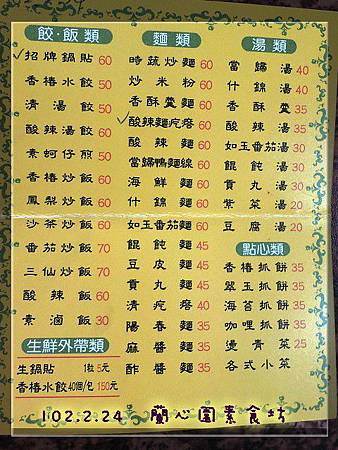 餃·飯類
招牌鍋貼 60
香椿水餃 50
清湯餃 50
酸辣湯餃 60
素蚵仔煎 50
香椿炒飯 60
鳳梨炒飯 60
沙茶炒飯 60
番茄炒飯 70
三仙炒飯 70
酸辣飯 60
素滷飯 30
生鮮外帶類
生鍋貼 1粒 5元
香椿水餃 40個/包 150元
麵類
時蔬炒麵 60
炒米粉 60
香酥羹麵 60
酸辣麵疙瘩 60
酸辣麵 60
當歸鴨麵線 60
海鮮麵 60
什錦麵 60
如玉番茄麵 60
餛飩麵 45
豆皮麵 45
貢丸麵 45
清疙瘩 40
陽春麵 35
麻醬麵 35
炸醬麵 35
湯類
當歸湯 40
什錦湯 40
香酥羹 35
酸辣湯 30
如玉番茄湯 30
餛飩湯 30
貢丸湯 30
紫菜湯 20
豆腐湯 20
點心類
香椿抓餅 35
翠玉抓餅 35
海苔抓餅 35
咖哩抓餅 35
燙青菜 25
各式小菜
102.2.24 蘭心園素食坊